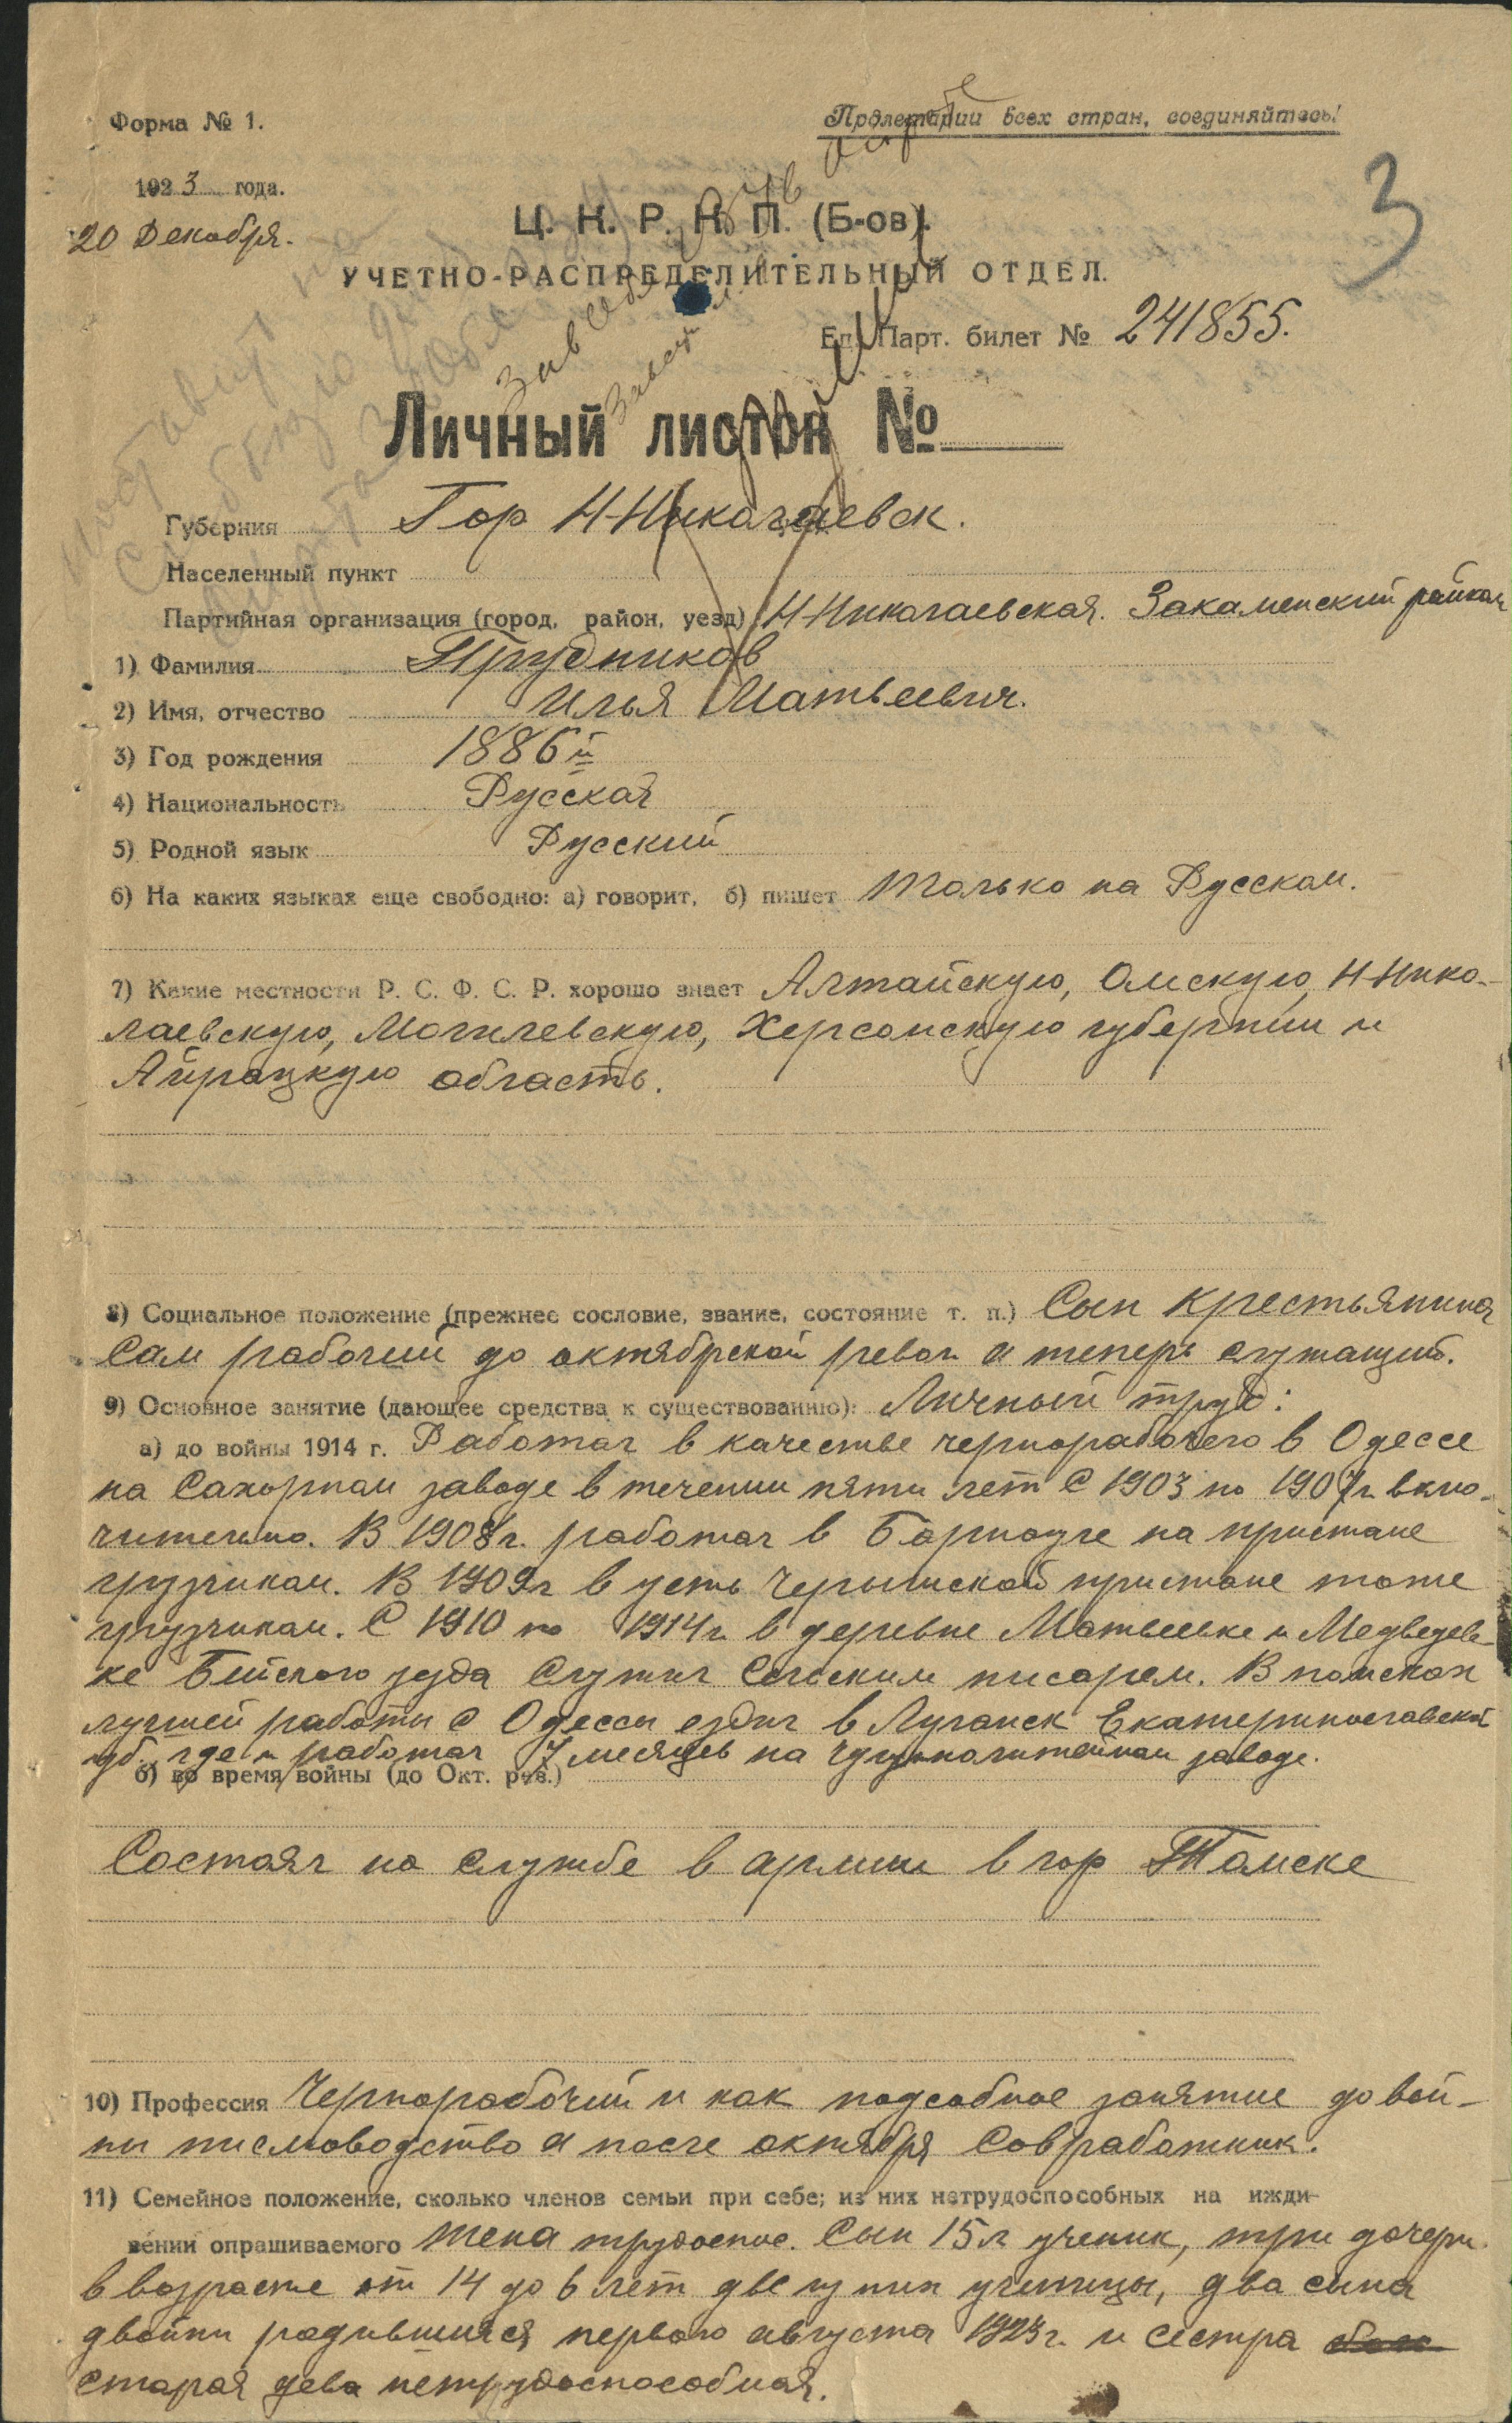 Форма № 1.
Пролетарии всех стран, соединяйтесь!
1923 года.
20 Декабря.
3
Ц. К. Р. К. П. (Б-ов).
УЧЕТНО-РАСПРЕДЕЛИТЕЛЬНЫЙ ОТДЕЛ.
Ед. Парт. билет № 241855.
Личный листок №
Губерния Гор Н-Николаевск.
Населенный пункт
Партийная организация (город, район, уезд) Н-Николаевская. Закаменский райком
1) Фамилия Прудников
2) Имя, отчество Илья Матвеевич.
3) Год рождения 1886й
4) Национальность Русская
5) Родной язык Русский
6) На каких языках еще свободно: а) говорит, б) пишет только на Русском.
7) Какие местности Р. С. Ф. С. Р. хорошо знает Алтайскую, Омскую, Н-Нико-
лаевскую, Могилевскую, Херсонскую губернии и
Айрацкую область.
8) Социальное положение (прежнее сословие, звание, состояние т. п.) Сын крестьянина
Сам рабочий до октябрской револ а теперь служащий.
9) Основное занятие (дающее средства к существованию): Личный труд:
а) до войны 1914 г. Работал в качестве чернорабочего в Одессе
на Сахорном заводе в течении пяти лет С 1903 по 1907г вклю-
чительно. В 1908г. работал в Барнауле на пристане
грузчиком. В 1909г в усть Чарышской пристане тоже
грузчиком. С 1910 по 1914г в деревне Матвеевке и Медведев-
ке Бийского уезда Служил Сельским писарем. В поисках
лучшей работы с Одессы ездил в Луганск Екатеринославской
губ. где и работал 7 месяцев на чугунолитейном заводе.
б) во время войны (до Окт. рев.)
Состоял на службе в армии в гор Томске
10) Профессия Чернорабочий и как подсобное занятие до вой-
ны писмоводство а после октября Совработник.
11) Семейное положение, сколько членов семьи при себе; из них нетрудоспособных на ижди-
вении опрашиваемого Жена трудоспос. Сын 15л ученик, три дочери
в возрасте от 14 до 6 лет две из них ученицы, два сына
двойни родившиися первого августа 1923г. и сестра
старая дева нетрудоспособная.